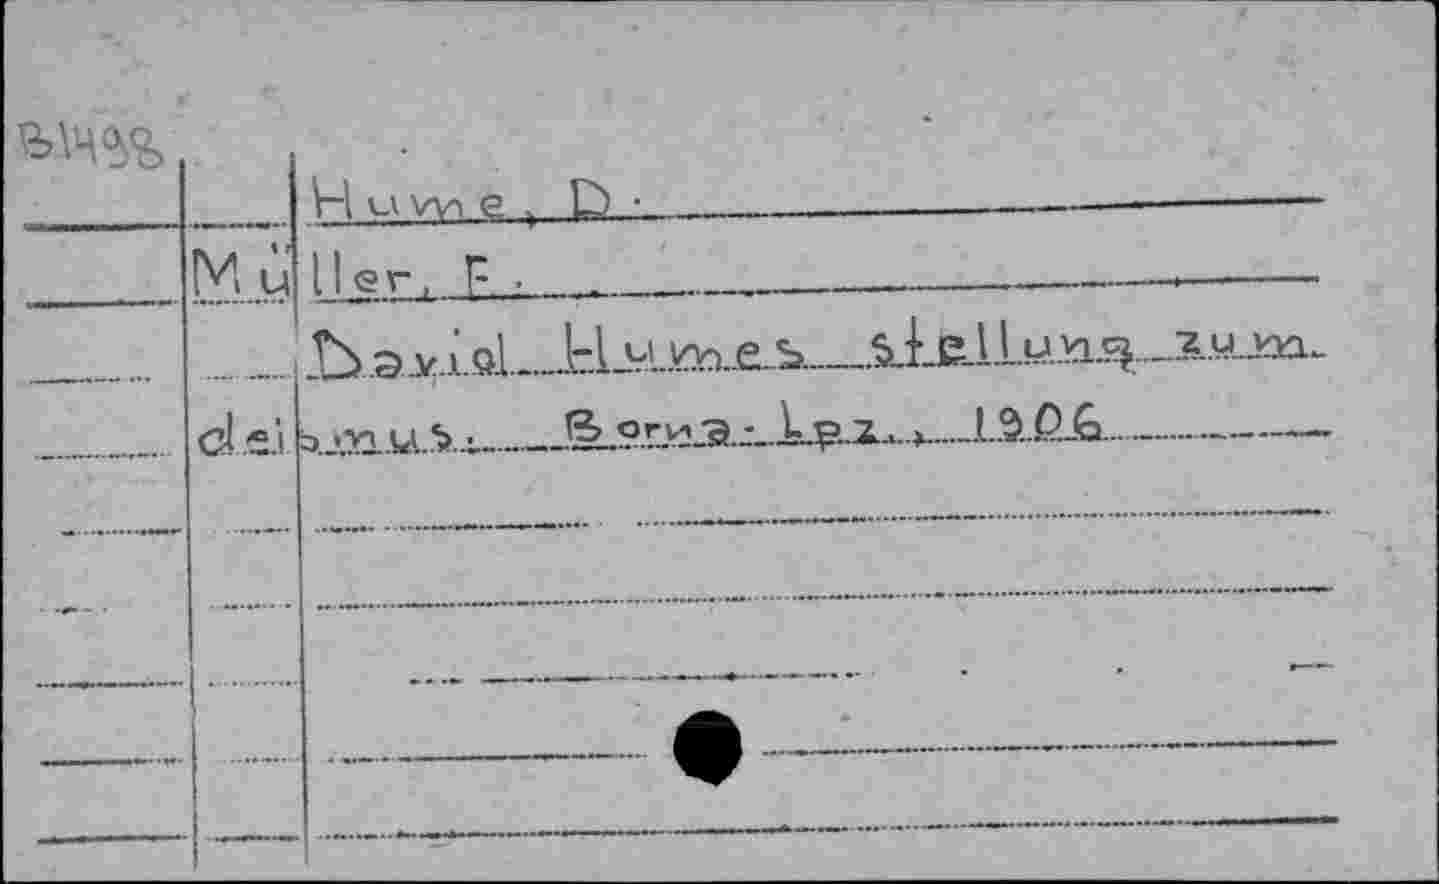 Hume, D.
Müller, E.
David Humes stellung zum
deismus. Borna-Lpz., 1906